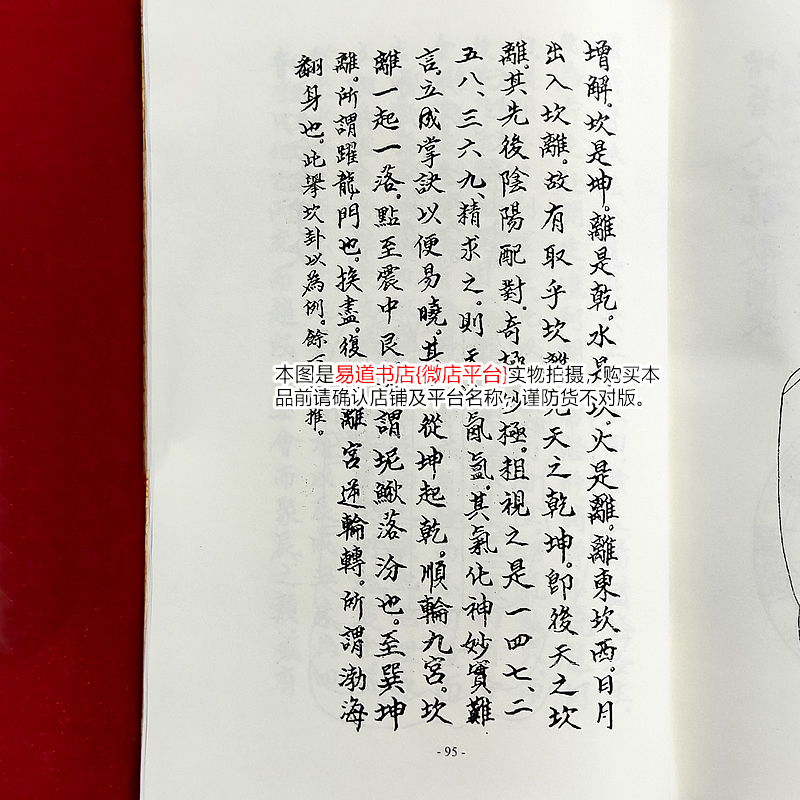 增解。坎是坤。離是乾。水是坎。火是離。離東坎西。日月
出入坎離。故有取乎坎離先天之乾坤。即後天之坎
離。其先後陰陽配對。奇極妙極。粗視之是一四七、二
五八、三六九、精求之。則天氤氳。其氣化神妙實難
言。立成掌訣以便易曉。其從坤起乾。順輪九宮。坎
離一起一落。點至震中艮謂坭鰍落汾也。至巽坤
離。所謂躍龍門也。挨盡。復離宮逆輪轉。所謂渤海
翻身也。此舉坎卦以為例。餘推。
本图是易道书店{微店平台}实物拍摄，购买本
品前请确认店铺及平台名称，谨防货不对版。
- 95 -